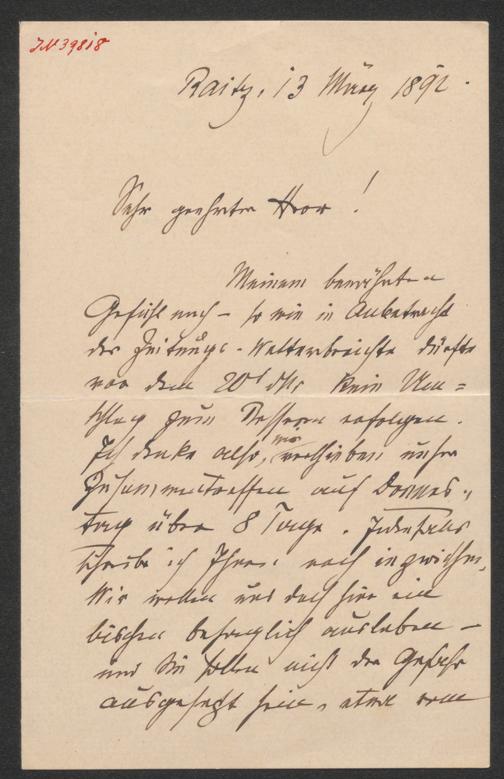 JN 39818
Raitz, 13 März 1892.
Sehr geehrter Herr!
Meinem bewährten
Gefühl nach – so wie in Anbetracht
der Zeitungs-Wetterberichte dürfte
vor dem 20t dMs kein Um=
schlag zum Bessern erfolgen.
Ich denke also, wir verschieben unser
Zusammentreffen auf Donners-
tag über 8 Tage. Jedenfalls
schreibe ich Ihnen noch inzwischen.
Wir wollen uns doch hier ein
bischen behaglich ausleben –
und Sie sollen nicht der Gefahr
ausgesetzt sein, etwa vom